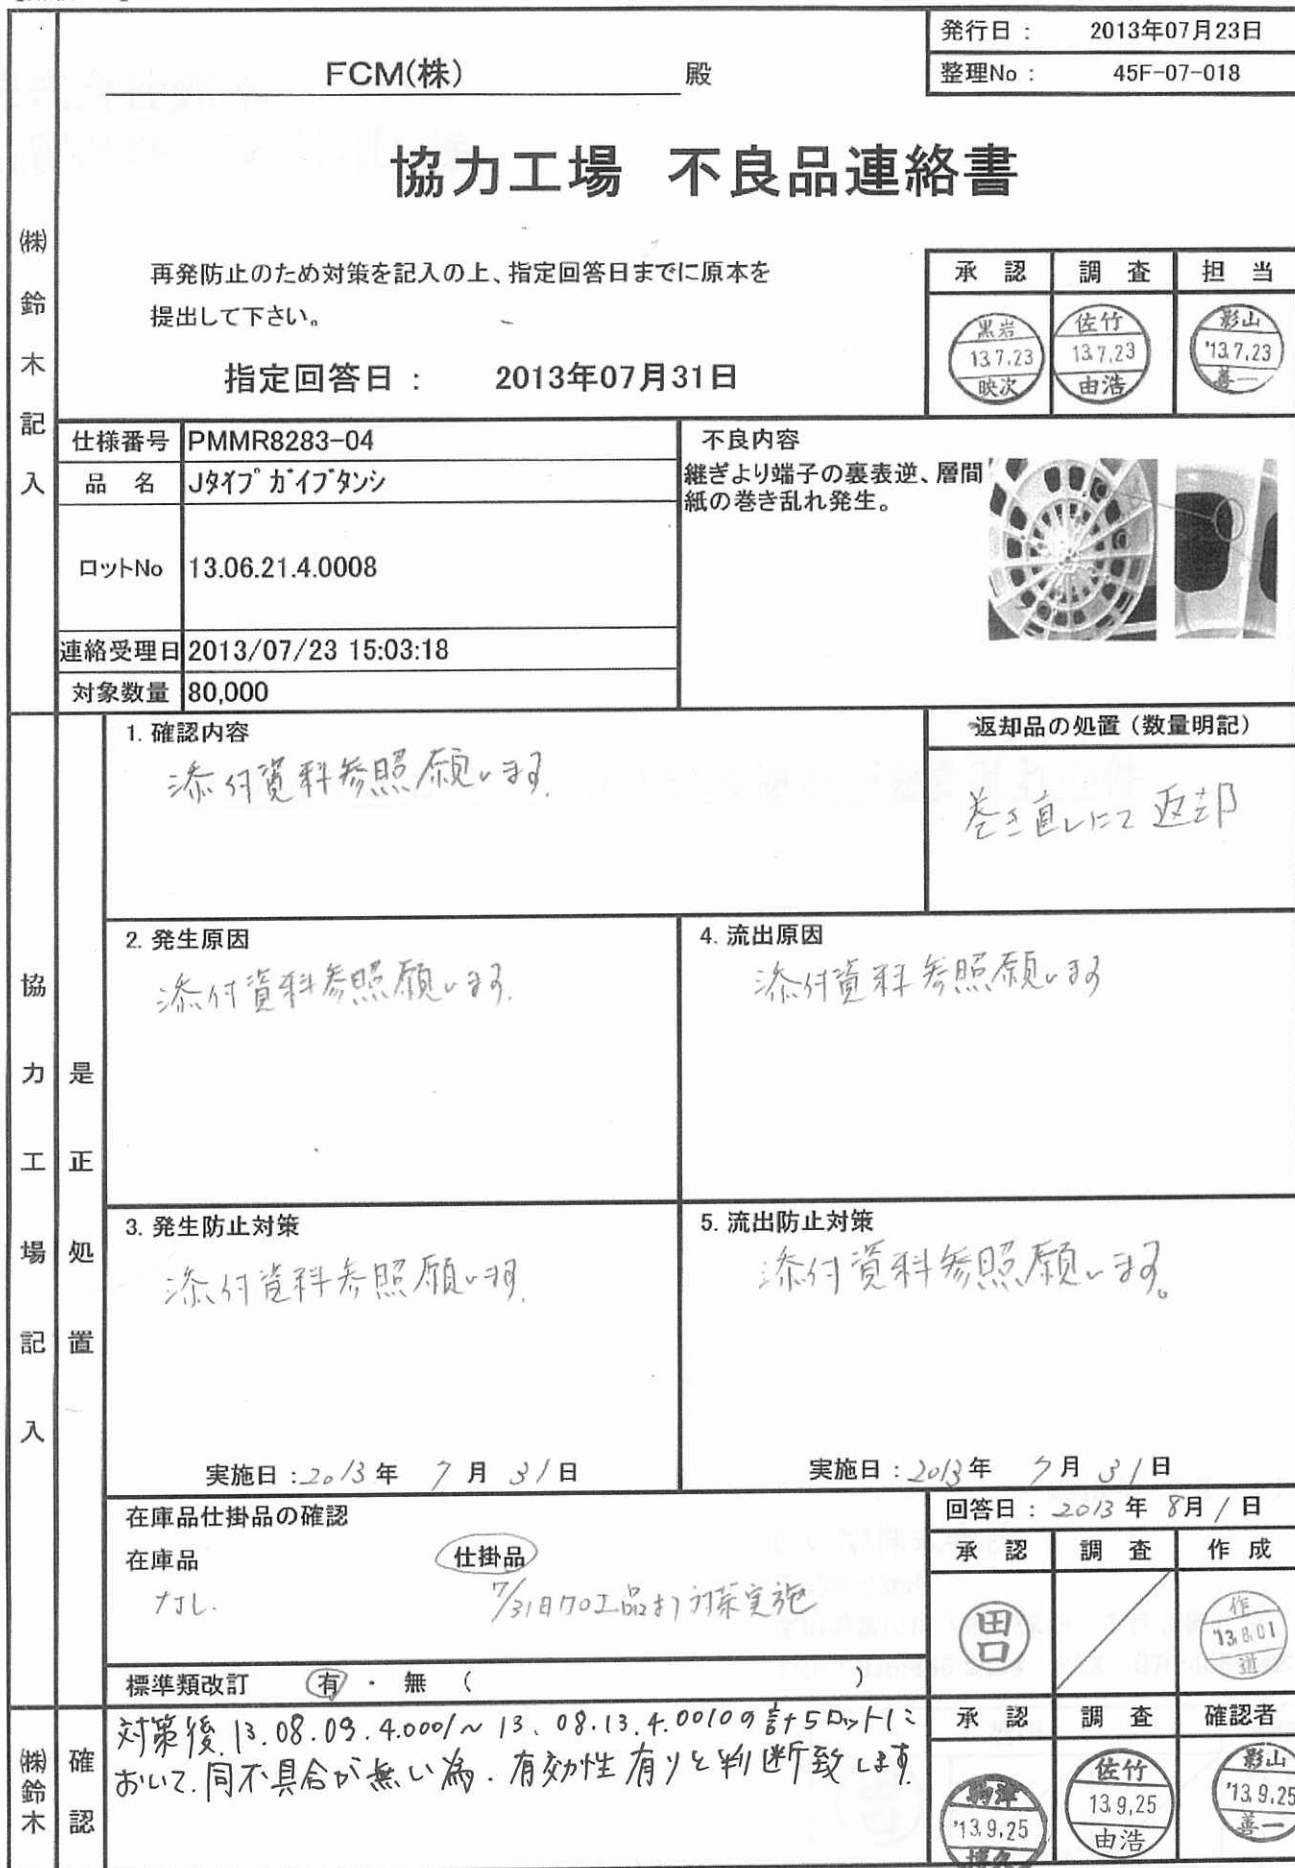 発行日： 2013年07月23日
整理No： 45F-07-018
FCM(株) 殿
協力工場 不良品連絡書
㈱鈴木記入
再発防止のため対策を記入の上、指定回答日までに原本を
提出して下さい。
指定回答日： 2013年07月31日
承認 調査 担当
黒岩 13.7.23 映次
佐竹 13.7.23 由浩
影山 '13.7.23 善一
仕様番号 PMMR8283-04
品名 Jタイプ ガイブタンシ
ロットNo 13.06.21.4.0008
連絡受理日 2013/07/23 15:03:18
対象数量 80,000
不良内容
継ぎより端子の裏表逆、層間
紙の巻き乱れ発生。
協力工場記入
是正処置
1. 確認内容
添付資料参照願います。
返却品の処置（数量明記）
巻き直しにて返却
2. 発生原因
添付資料参照願います。
4. 流出原因
添付資料参照願います
3. 発生防止対策
添付資料参照願います。
実施日：2013年 7月 31日
5. 流出防止対策
添付資料参照願います。
実施日：2013年 7月 31日
在庫品仕掛品の確認
在庫品 仕掛品
なし。 7/31日加工品より対策実施
標準類改訂 有・無（ ）
回答日：2013年 8月 1日
承認 調査 作成
田口
作 '13.8.01 道
㈱鈴木
確認
対策後、13.08.09.4.0001～13.08.13.4.0010の計5ロットに
おいて、同不具合が無い為、有効性有りと判断致します。
承認 調査 確認者
'13.9.25
佐竹 13.9.25 由浩
影山 '13.9.25 善一